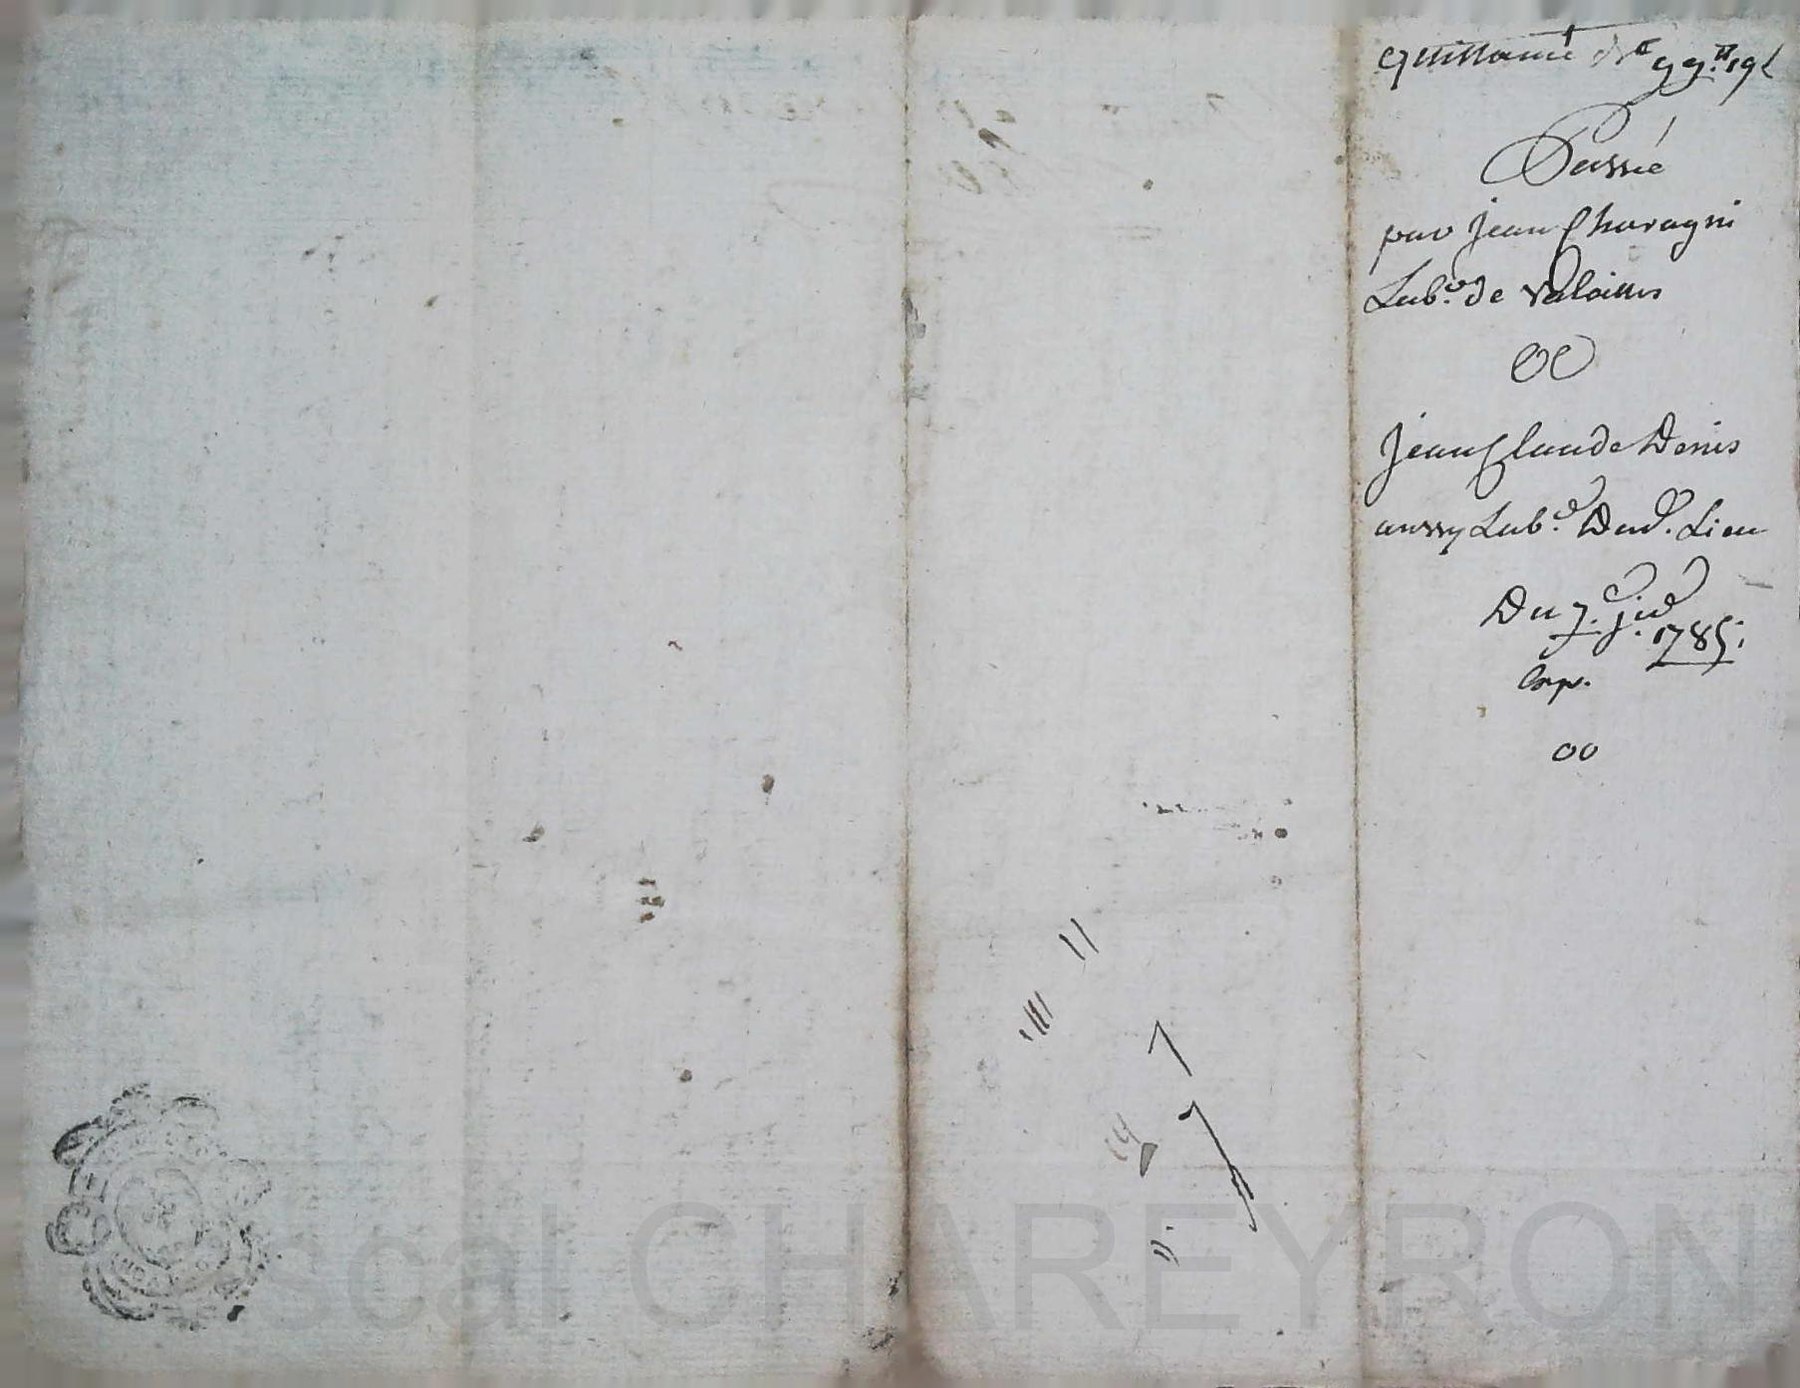 Quittance de 99ᵗᵗ 19ˢ
Passée
par jean Charagni
Labʳ. de valoins
a
jean Claude Denis
aussy Labʳ. Dud. Lieu
Du 7. jer
1785.
Exp.
scal CHAREYRON